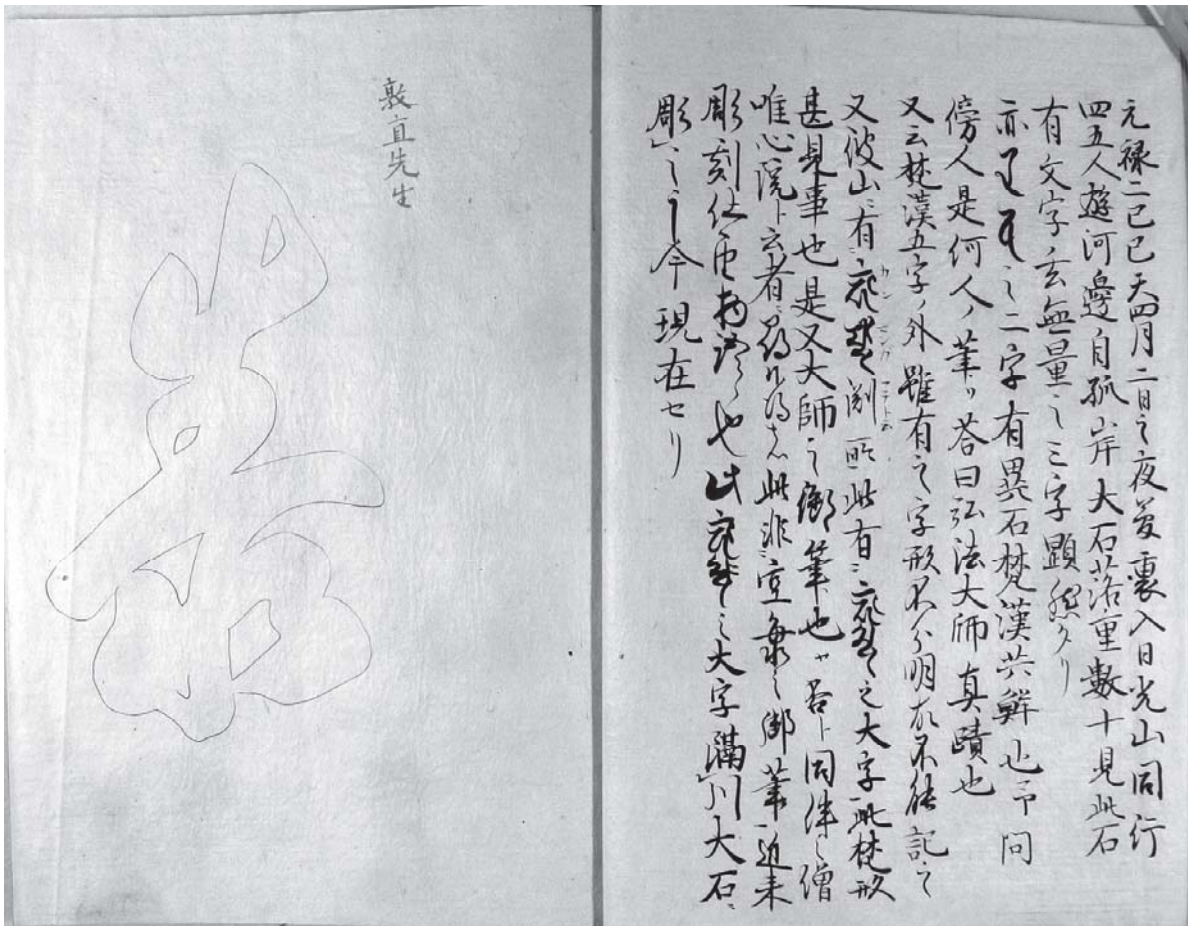 元禄二己巳天四月二日之夜夢裏入日光山同行
四五人遊河邊自孤山岸大石落重數十見此石
有文字玄無量之三字顕然タリ
亦之二字有異石梵漢共鮮也予問
傍人是何人ノ筆ソ答曰弘法大師真蹟也
又云梵漢五字ノ外雖有之字形不分明故不能記之
又彼山ニ有 カン マンヲ 淵 此有ニ之大字此梵形
甚見事也是又大師之御筆也ヤ否ト同伴之僧
唯心院ト云者ニ尋此非空海之御筆近来
彫刻仕也此之大字満川大石ニ
彫之今現在セリ
敦直先生